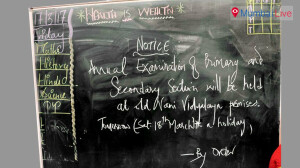 Mumbai Live
HEALTH IS WEALTH
NOTICE
Annual Examination of Primary and
Secondary Section will be held
at old Nani Vidyalaya premises.
Tomorrow (Sat. 18th March is a holiday)
— By Order
Maths
History
Hindi
Science